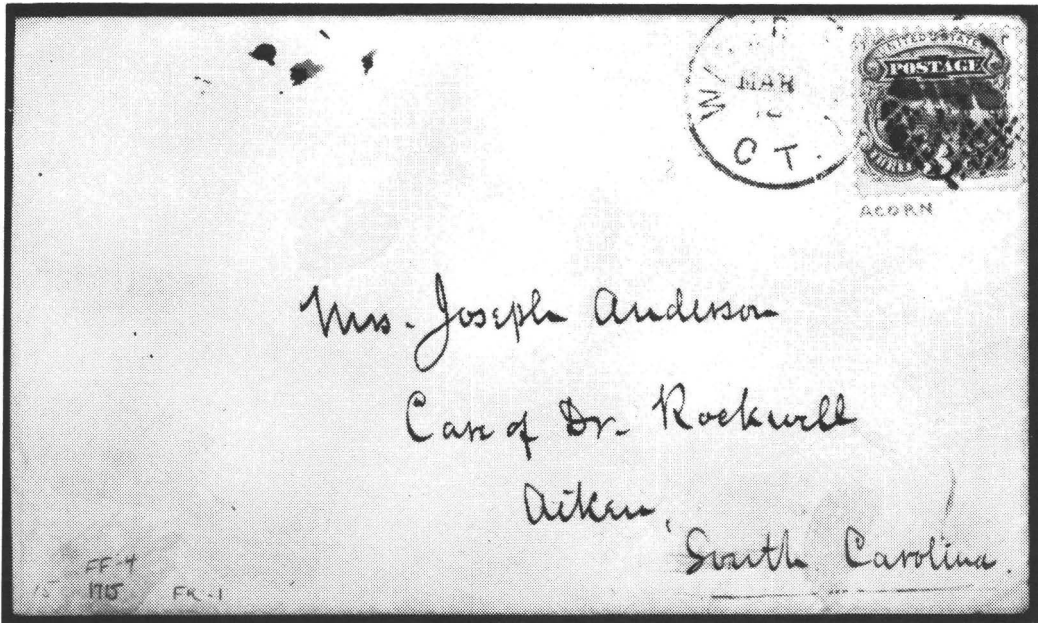 MAR
CT.
UNITED STATES
POSTAGE
3
ACORN
Mrs. Joseph Anderson
Care of Dr. Rockwell
Aiken,
South Carolina.
FF-4
1715
FK-1